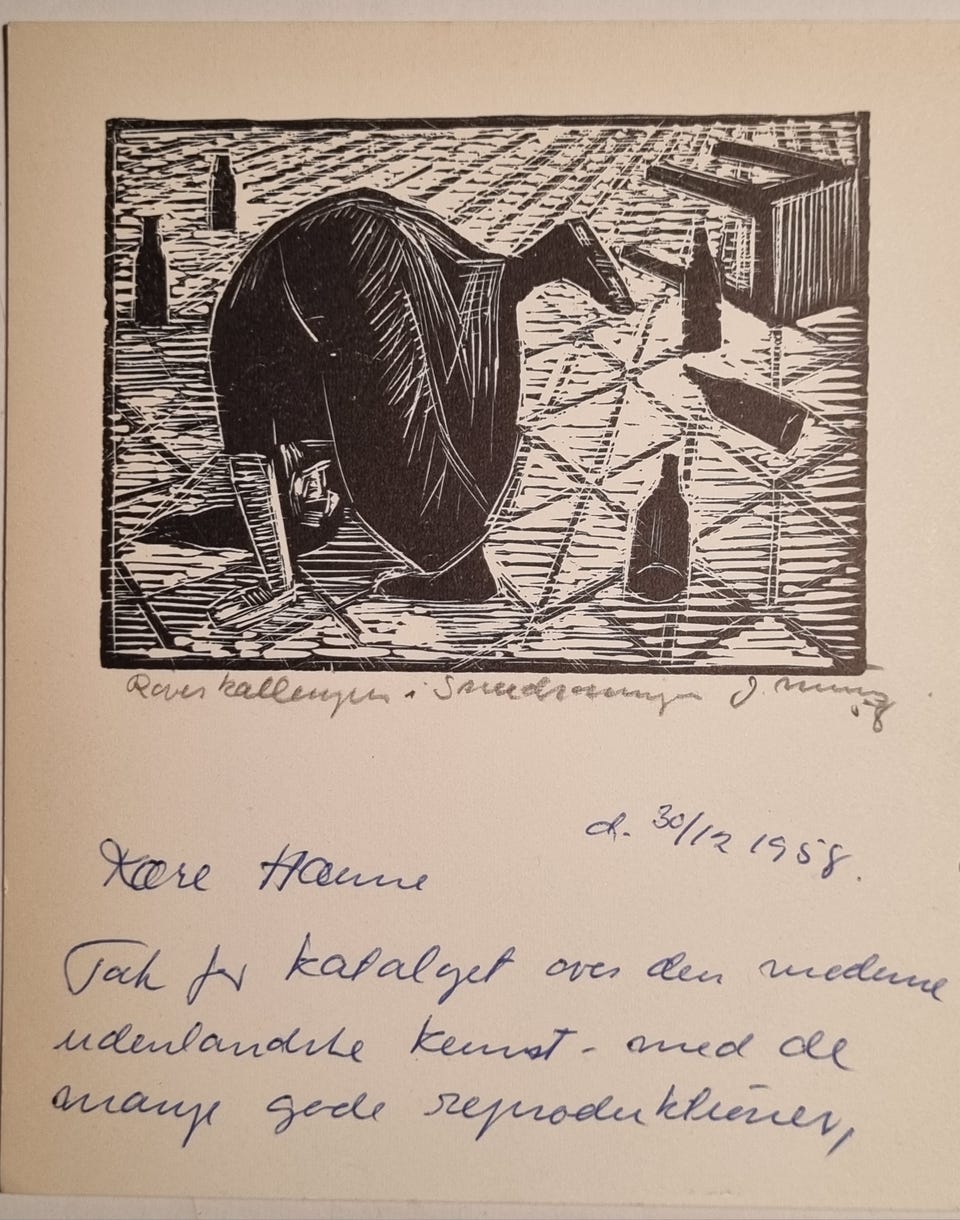 Røverkællingen i Snedronningen J.
58
d. 30/12 1958.
Kære Hanne
Tak for kataloget over den moderne
udenlandske kunst - med de
mange gode reproduktioner,